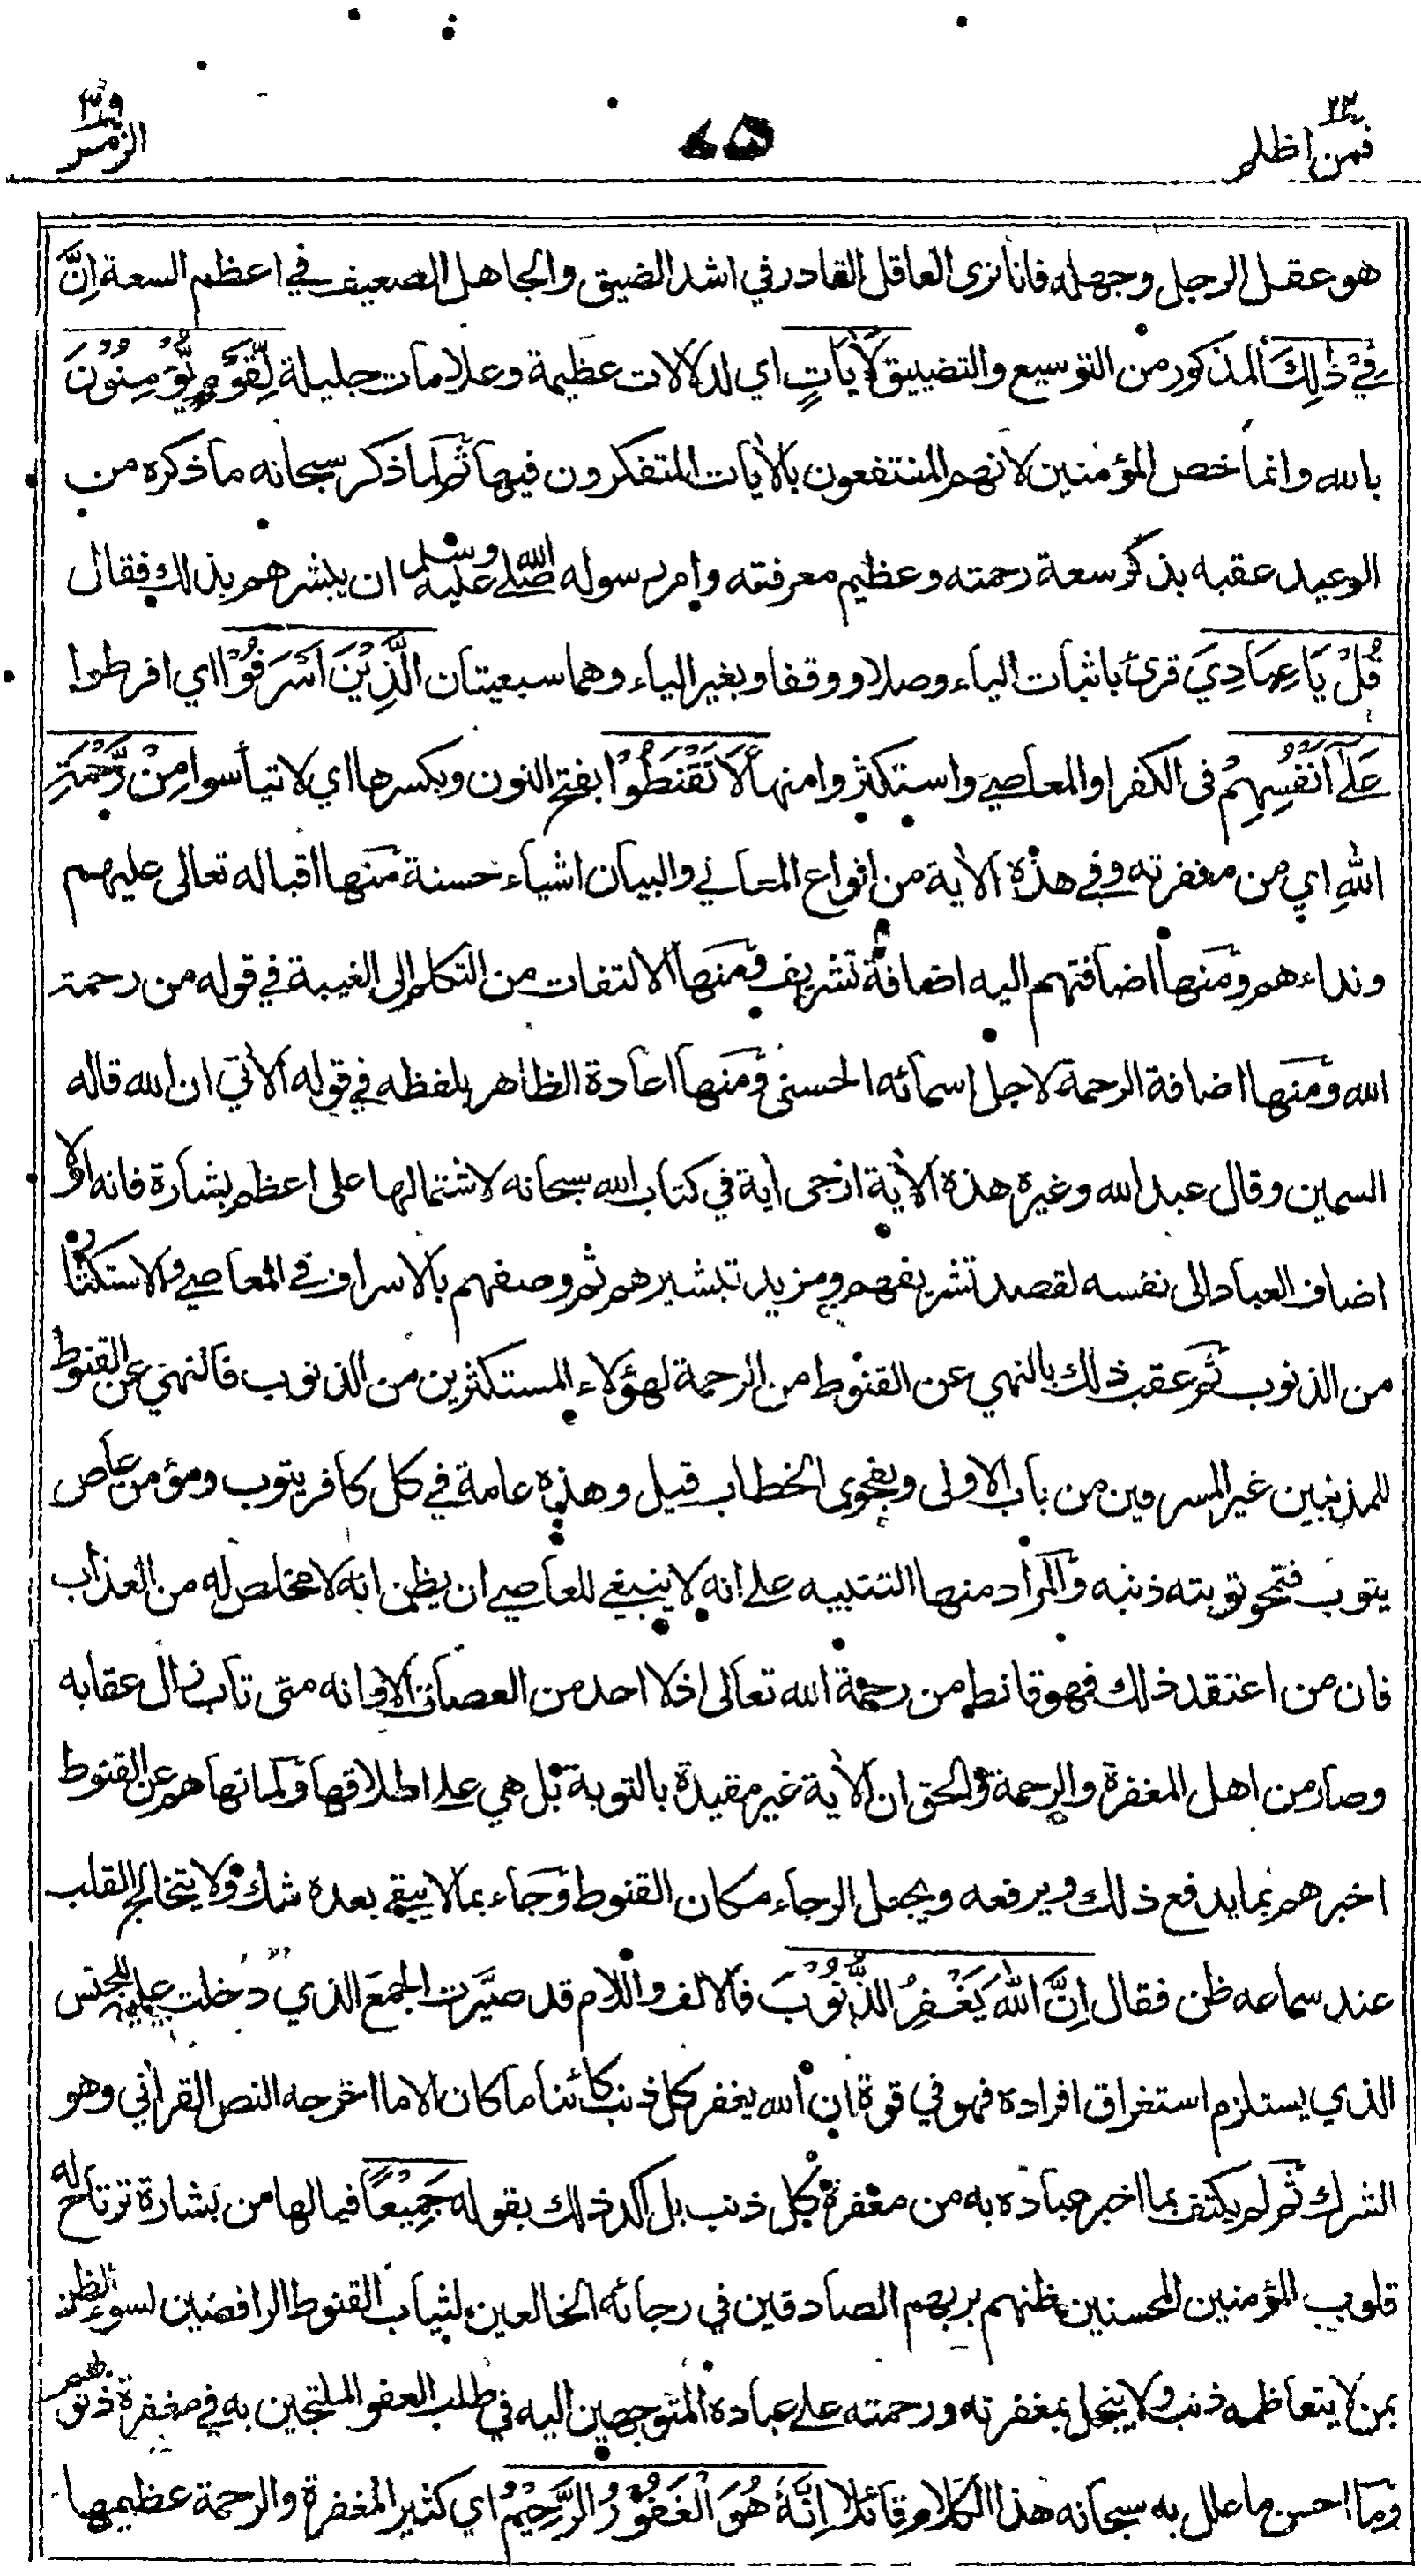 فمن اظلم ٢٤
الزمر ٣٩
هو عقل الرجل وجهله فانا نرى العاقل القادر في اشد الضيق والجاهل الضعيف في اعظم السعة اِنَّ
فِيْ ذٰلِكَ المذكور من التوسيع والتضييق لَاٰيَاتٍ اي لدلالات عظيمة وعلامات جليلة لِّقَوْمٍ يُّؤْمِنُوْنَ
بالله وانما خص المؤمنين لانهم المنتفعون بالاٰيات المتفكرون فيها ثم لما ذكر سبحانه ما ذكره من
الوعيد عقبه بذكر سعة رحمته وعظيم معرفته وامر رسوله صلى الله عليه وسلم ان يبشرهم بذلك فقال
قُلْ يَا عِبَادِيَ قرئ باثبات الياء وصلا ووقفا وبغير الياء وهما سبعيتان الَّذِيْنَ اَسْرَفُوْا اي افرطوا
عَلٰٓى اَنْفُسِهِمْ فى الكفر او المعاصي واستكثروا منها لَا تَقْنَطُوْا بفتح النون وبكسرها اي لا تيأسوا مِنْ رَّحْمَةِ
اللّٰهِ اي من مغفرته وفي هذه الاٰية من انواع المعاني والبيان اشياء حسنة منها اقباله تعالى عليهم
ونداءهم ومنها اضافتهم اليه اضافة تشريف ومنها الالتفات من التكلم الى الغيبة في قوله من رحمة
الله ومنها اضافة الرحمة لاجل اسمائه الحسنى ومنها اعادة الظاهر بلفظه في قوله الاٰتي ان الله قاله
السمين وقال عبد الله وغيره هذه الاٰية ارجى اٰية في كتاب الله سبحانه لاشتمالها على اعظم بشارة فانه اولا
اضاف العباد الى نفسه لقصد تشريفهم ومزيد تبشيرهم ثم وصفهم بالاسراف في المعاصي والاستكثار
من الذنوب ثم عقب ذلك بالنهي عن القنوط من الرحمة لهؤلاء المستكثرين من الذنوب فالنهي عن القنوط
للمذنبين غير المسرفين من باب الاولى وبفحوى الخطاب قيل وهذه عامة في كل كافر يتوب ومؤمن عاص
يتوب فتمحو توبته ذنبه والمراد منها التنبيه على انه لا ينبغي للعاصي ان يظن انه لا مخلص له من العذاب
فان من اعتقد ذلك فهو قانط من رحمة الله تعالى اذ لا احد من العصاة الا وانه متى تاب زال عقابه
وصار من اهل المغفرة والرحمة والحق ان الاٰية غير مقيدة بالتوبة بل هي على اطلاقها ولما نهاهم عن القنوط
اخبرهم بما يدفع ذلك ويرفعه ويجعل الرجاء مكان القنوط وجاء بما لا يبقى بعده شك ولا يتخالج القلب
عند سماعه ظن فقال اِنَّ اللّٰهَ يَغْفِرُ الذُّنُوْبَ فالالف واللام قد صيَّرت الجمع الذي دخلت عليه للجنس
الذي يستلزم استغراق افراده فهو في قوة ان الله يغفر كل ذنب كائنا ما كان الا ما اخرجه النص القراٰني وهو
الشرك ثم لم يكتف بما اخبر عباده به من مغفرة كل ذنب بل اكد ذلك بقوله جَمِيْعًا فيا لها من بشارة ترتاح له
قلوب المؤمنين المحسنين ظنهم بربهم الصادقين في رجائه الخالعين لثياب القنوط الرافضين لسوء الظن
بمن لا يتعاظمه ذنب ولا يبخل بمغفرته ورحمته على عباده المتوجهين اليه في طلب العفو الملتجين به في مغفرة ذنوبهم
وما احسن ما علل به سبحانه هذا الكلام قائلا اِنَّهٗ هُوَ الْغَفُوْرُ الرَّحِيْمُ اي كثير المغفرة والرحمة عظيمها